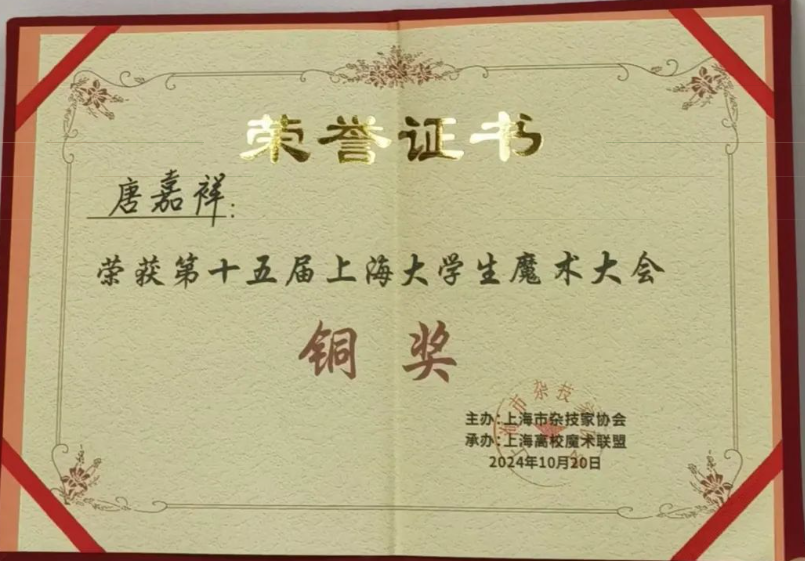 荣誉证书
唐嘉祥:
荣获第十五届上海大学生魔术大会
铜奖
主办:上海市杂技家协会
承办:上海高校魔术联盟
2024年10月20日